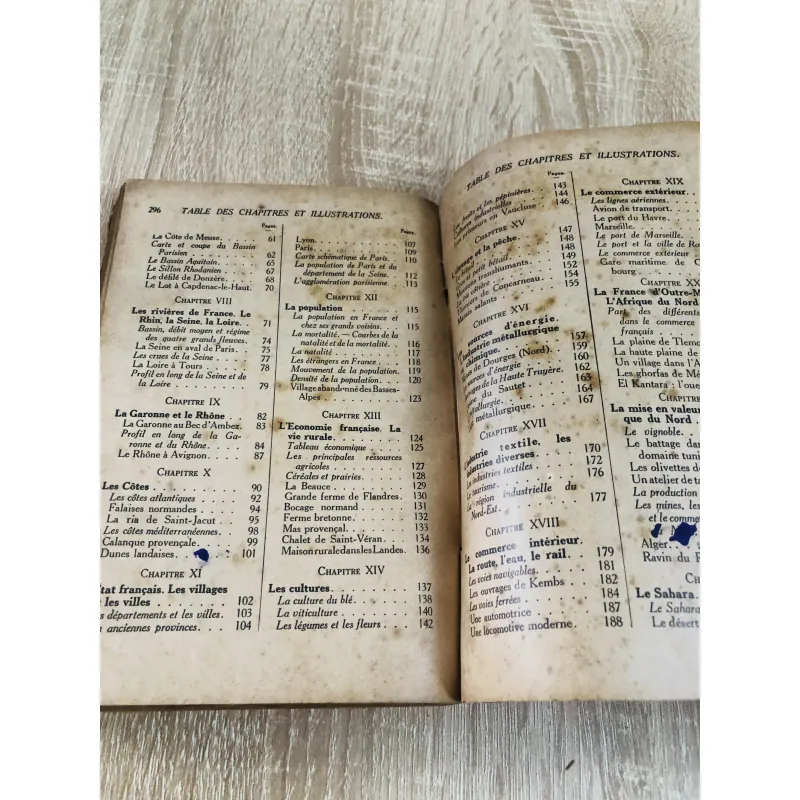 296 TABLE DES CHAPITRES ET ILLUSTRATIONS.
Pages.
La Côte de Meuse. 61
Carte et coupe du Bassin
Parisien 62
Le Bassin Aquitain. 65
Le Sillon Rhodanien 67
Le défilé de Donzère. 68
Le Lot à Capdenac-le-Haut. 70
CHAPITRE VIII
Les rivières de France. Le
Rhin, la Seine, la Loire. 71
Bassin, débit moyen et régime
des quatre grands fleuves. 74
La Seine en aval de Paris. 75
Les crues de la Seine 77
La Loire à Tours 78
Profil en long de la Seine et de
la Loire 79
CHAPITRE IX
La Garonne et le Rhône 82
La Garonne au Bec d'Ambez. 83
Profil en long de la Ga-
ronne et du Rhône. 84
Le Rhône à Avignon 87
CHAPITRE X
Les Côtes 90
Les côtes atlantiques 92
Falaises normandes 94
La ria de Saint-Jacut 95
Les côtes méditerranéennes. 98
Calanque provençale. 99
Dunes landaises 101
CHAPITRE XI
État français. Les villages
les villes 102
départements et les villes. 103
anciennes provinces 104
Pages.
Lyon. 107
Paris. 109
Carte schématique de Paris. 110
La population de Paris et du
département de la Seine. 112
L'agglomération parisienne. 113
CHAPITRE XII
La population 115
La population en France et
chez ses grands voisins. 115
La mortalité. — Courbes de la
natalité et de la mortalité. 116
La natalité 117
Les étrangers en France 118
Mouvement de la population. 119
Densité de la population 120
Village abandonné des Basses-
Alpes 123
CHAPITRE XIII
L'Economie française. La
vie rurale. 124
Tableau économique 125
Les principales ressources
agricoles 127
Céréales et prairies 128
La Beauce 129
Grande ferme de Flandres. 130
Bocage normand 131
Ferme bretonne. 132
Mas provençal. 133
Chalet de Saint-Véran. 134
Maison rurale dans les Landes. 136
CHAPITRE XIV
Les cultures. 137
La culture du blé. 138
La viticulture 140
Les légumes et les fleurs 142
TABLE DES CHAPITRES ET ILLUSTRATIONS.
Pages.
fruits et les pépinières. 143
industrielles 144
en Vaucluse 146
CHAPITRE XV
et la pêche. 147
148
petit bétail. 148
Moutons transhumants. 149
152
Concarneau. 154
Marais salants 155
CHAPITRE XVI
sources d'énergie.
industrie métallurgique
chimique. 157
de Dourges (Nord). 159
d'énergie 160
de la Haute Truyère. 162
du Sautet 163
métallurgie. 165
métallurgique. 167
CHAPITRE XVII
industrie textile, les
industries diverses. 170
Les industries textiles 172
Le tourisme. 176
La région industrielle du
Nord-Est. 177
CHAPITRE XVIII
Le commerce intérieur.
La route, l'eau, le rail. 179
Les voies navigables. 181
Les ouvrages de Kembs. 182
Les voies ferrées 184
Une automotrice 187
Une locomotive moderne 188
CHAPITRE XIX
Le commerce extérieur.
Les lignes aériennes.
Avion de transport.
Le port du Havre.
Marseille.
Le port de Marseille.
Le port et la ville de
Le commerce extérieur
Gare maritime de
bourg
CHAPITRE XX
La France d'Outre-M
L'Afrique du Nord
Part des différents
dans le commerce
français
La plaine de
La haute plaine de
Un village dans l'A
Les ghorfas de
El Kantara : l'oue
CHAPITRE
La mise en valeur
que du Nord
Le vignoble.
Le battage dans
domaine tuni
Les olivettes de
Un atelier de
La production
Les mines, les
et le comme
Alger.
Ravin du
CHAP
Le Sahara.
Le Sahara
Le désert